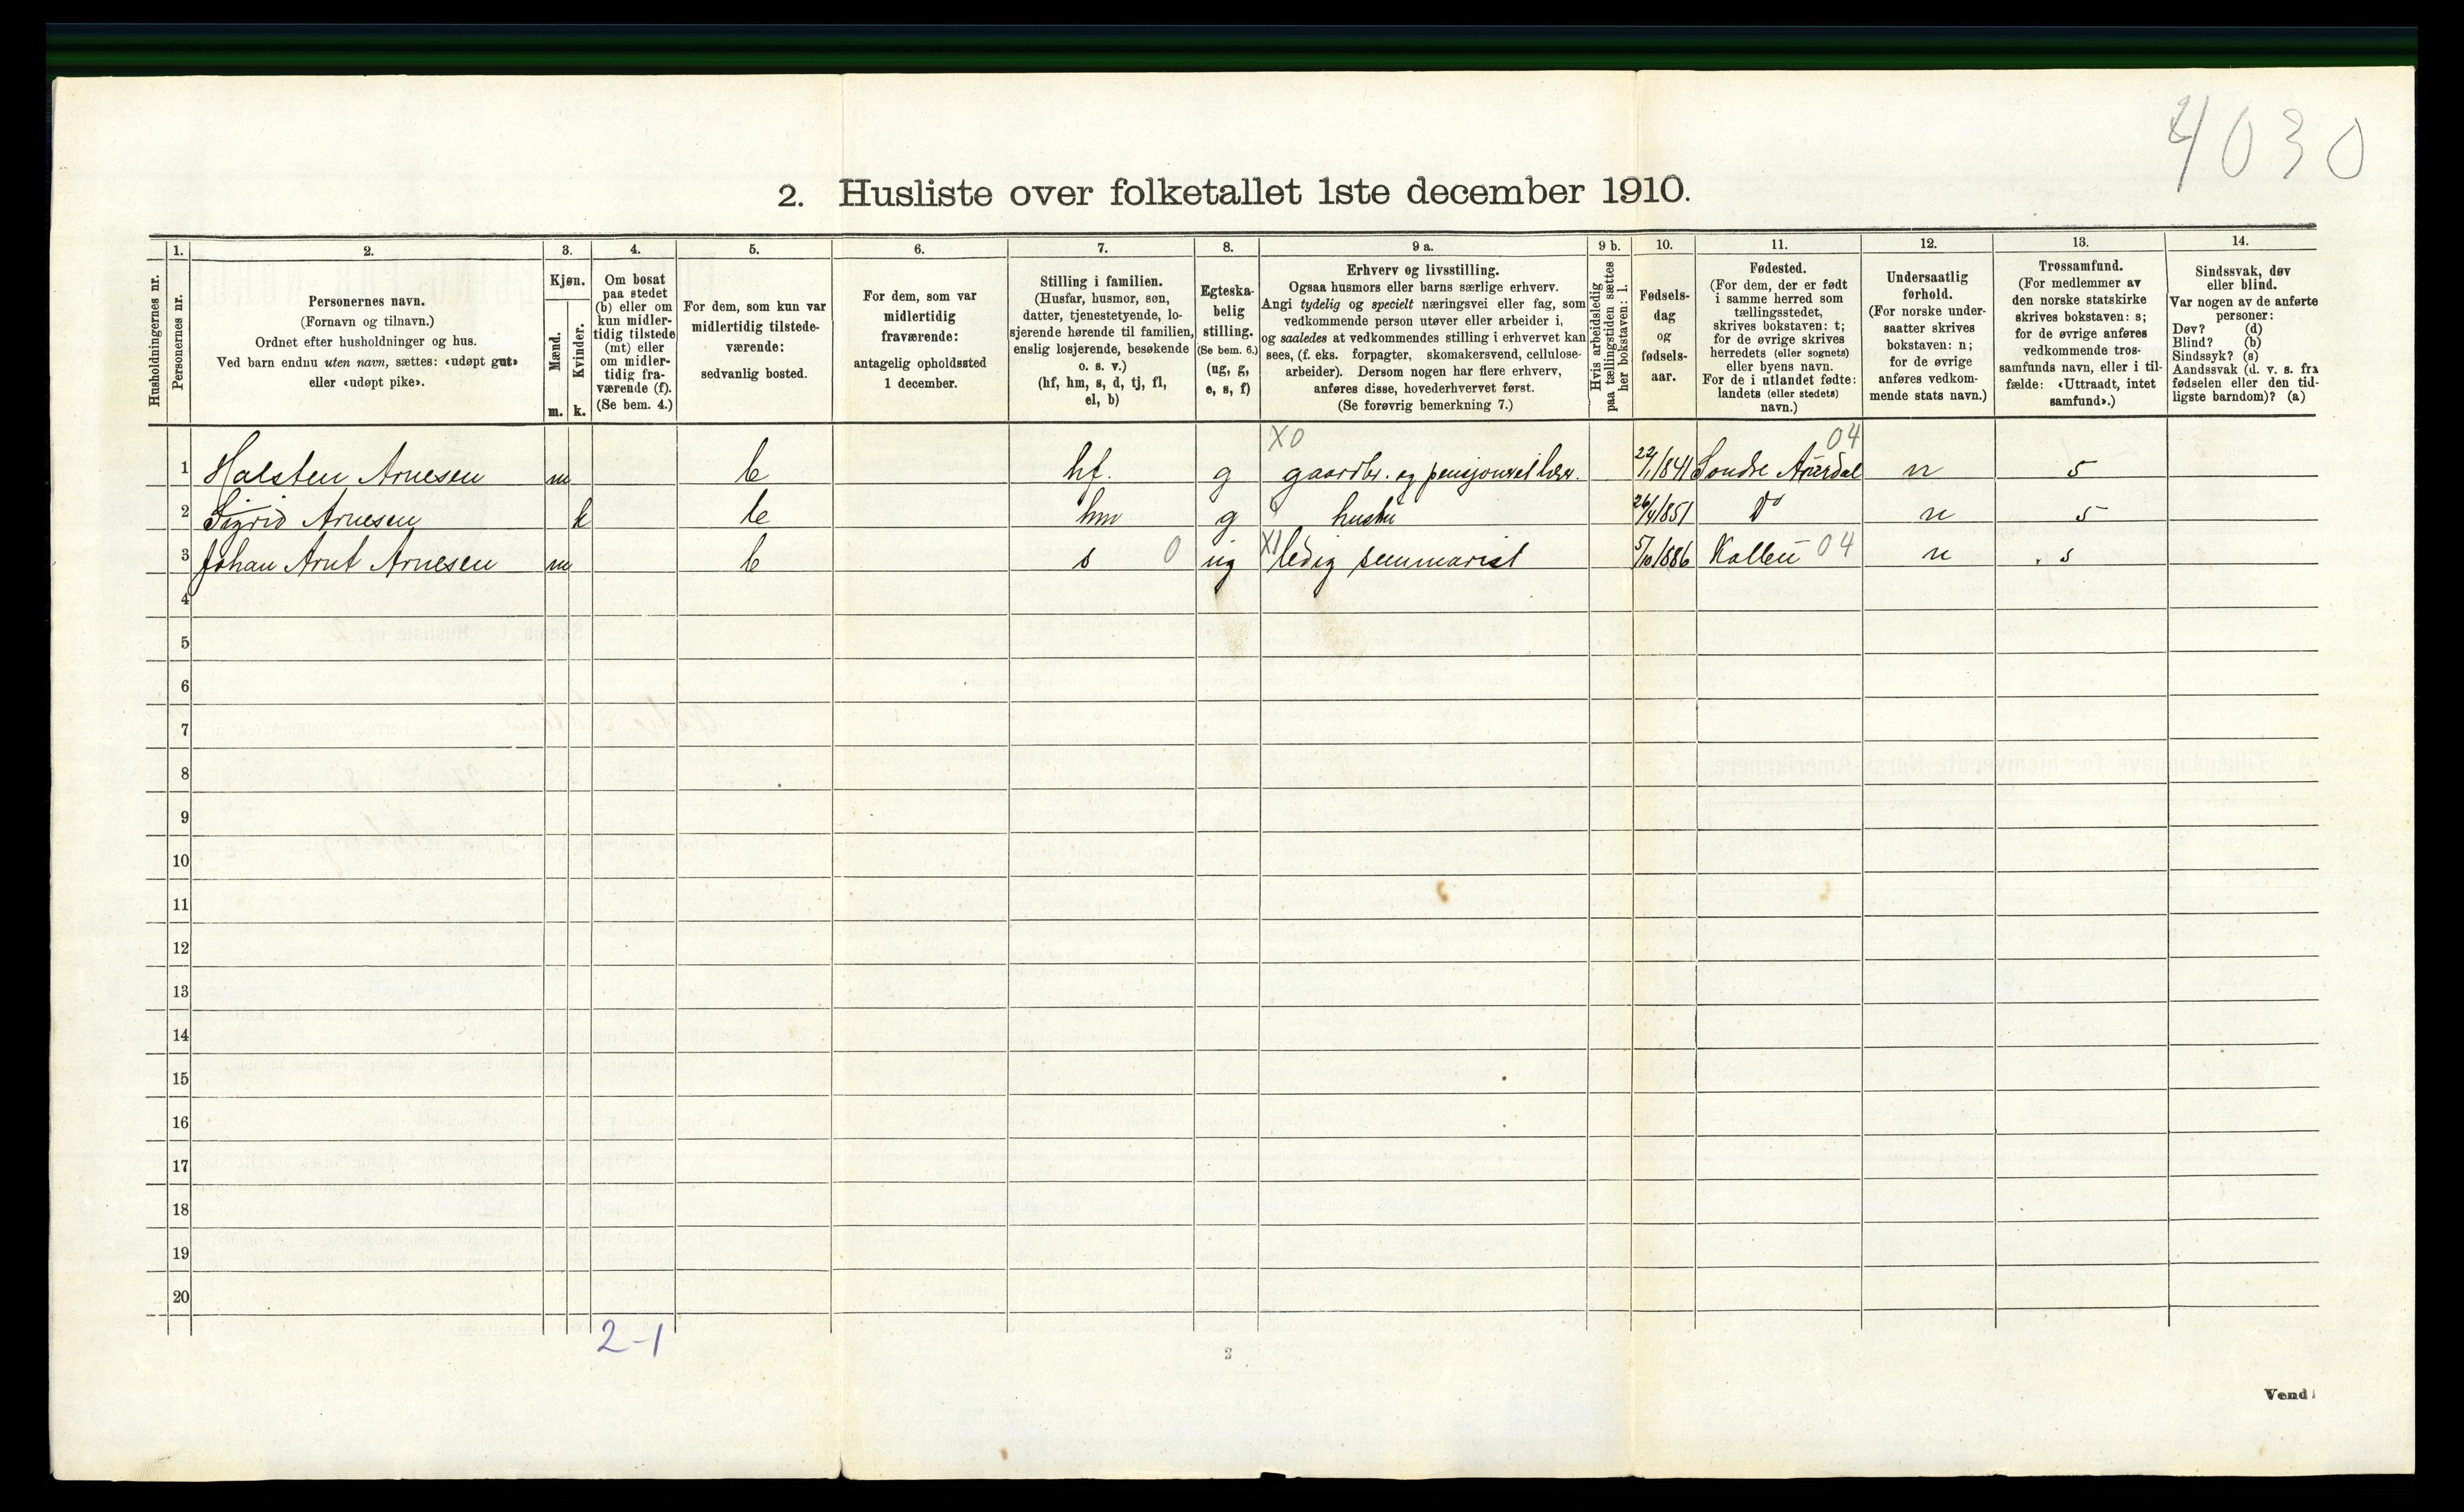 4030
2. Husliste over folketallet 1ste december 1910.
Husholdningernes nr.
1.
Personernes nr.
2.
Personernes navn.
(Fornavn og tilnavn.)
Ordnet efter husholdninger og hus.
Ved barn endnu uten navn, sættes: «udøpt gut»
eller «udøpt pike».
3.
Kjøn.
Mænd.
m.
Kvinder.
k.
4.
Om bosat
paa stedet
(b) eller om
kun midler-
tidig tilstede
(mt) eller
om midler-
tidig fra-
værende (f).
(Se bem. 4.)
5.
For dem, som kun var
midlertidig tilstede-
værende:
sedvanlig bosted.
6.
For dem, som var
midlertidig
fraværende:
antagelig opholdssted
1 december.
7.
Stilling i familien.
(Husfar, husmor, søn,
datter, tjenestetyende, lo-
sjerende hørende til familien,
enslig losjerende, besøkende
o. s. v.)
(hf, hm, s, d, tj, fl,
el, b)
8.
Egteska-
belig
stilling.
(Se bem. 6.)
(ug, g,
e, s, f)
9 a.
Erhverv og livsstilling.
Ogsaa husmors eller barns særlige erhverv.
Angi tydelig og specielt næringsvei eller fag, som
vedkommende person utøver eller arbeider i,
og saaledes at vedkommendes stilling i erhvervet kan
sees, (f. eks. forpagter, skomakersvend, cellulose-
arbeider). Dersom nogen har flere erhverv,
anføres disse, hovederhvervet først.
(Se forøvrig bemerkning 7.)
9 b.
Hvis arbeidsledig
paa tællingstiden sættes
her bokstaven: l.
10.
Fødsels-
dag
og
fødsels-
aar.
11.
Fødested.
(For dem, der er født
i samme herred som
tællingsstedet,
skrives bokstaven: t;
for de øvrige skrives
herredets (eller sognets)
eller byens navn.
For de i utlandet fødte:
landets (eller stedets)
navn.)
12.
Undersaatlig
forhold.
(For norske under-
saatter skrives
bokstaven: n;
for de øvrige
anføres vedkom-
mende stats navn.)
13.
Trossamfund.
(For medlemmer av
den norske statskirke
skrives bokstaven: s;
for de øvrige anføres
vedkommende tros-
samfunds navn, eller i til-
fælde: «Uttraadt, intet
samfund».)
14.
Sindssvak, døv
eller blind.
Var nogen av de anførte
personer:
Døv? (d)
Blind? (b)
Sindssyk? (s)
Aandssvak (d. v. s. fra
fødselen eller den tid-
ligste barndom)? (a)
X0 04
1 Halsten Arnesen m b hf. g gaardbr. og 22/1 1841 Søndre Aurdal n s
2 Sigrid Arnesen k b hm g hustru 26/4 1851 Do n s
3 Johan Arnt Arnesen m b s 0 ug X1 ledig seminarist 5/10 1886 04 n s
4
5
6
7
8
9
10
11
12
13
14
15
16
17
18
19
20
2-1
Vend!